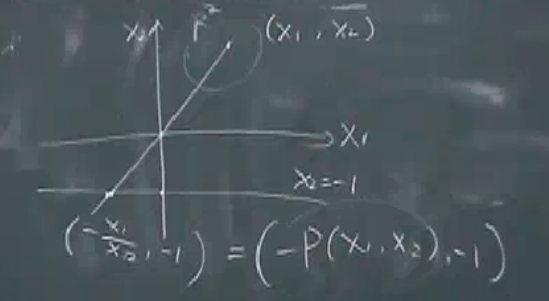 x₂ F² (x₁, x₂)
x₁
x₂=-1
(-x₁/x₂, -1) = (-P(x₁, x₂), -1)